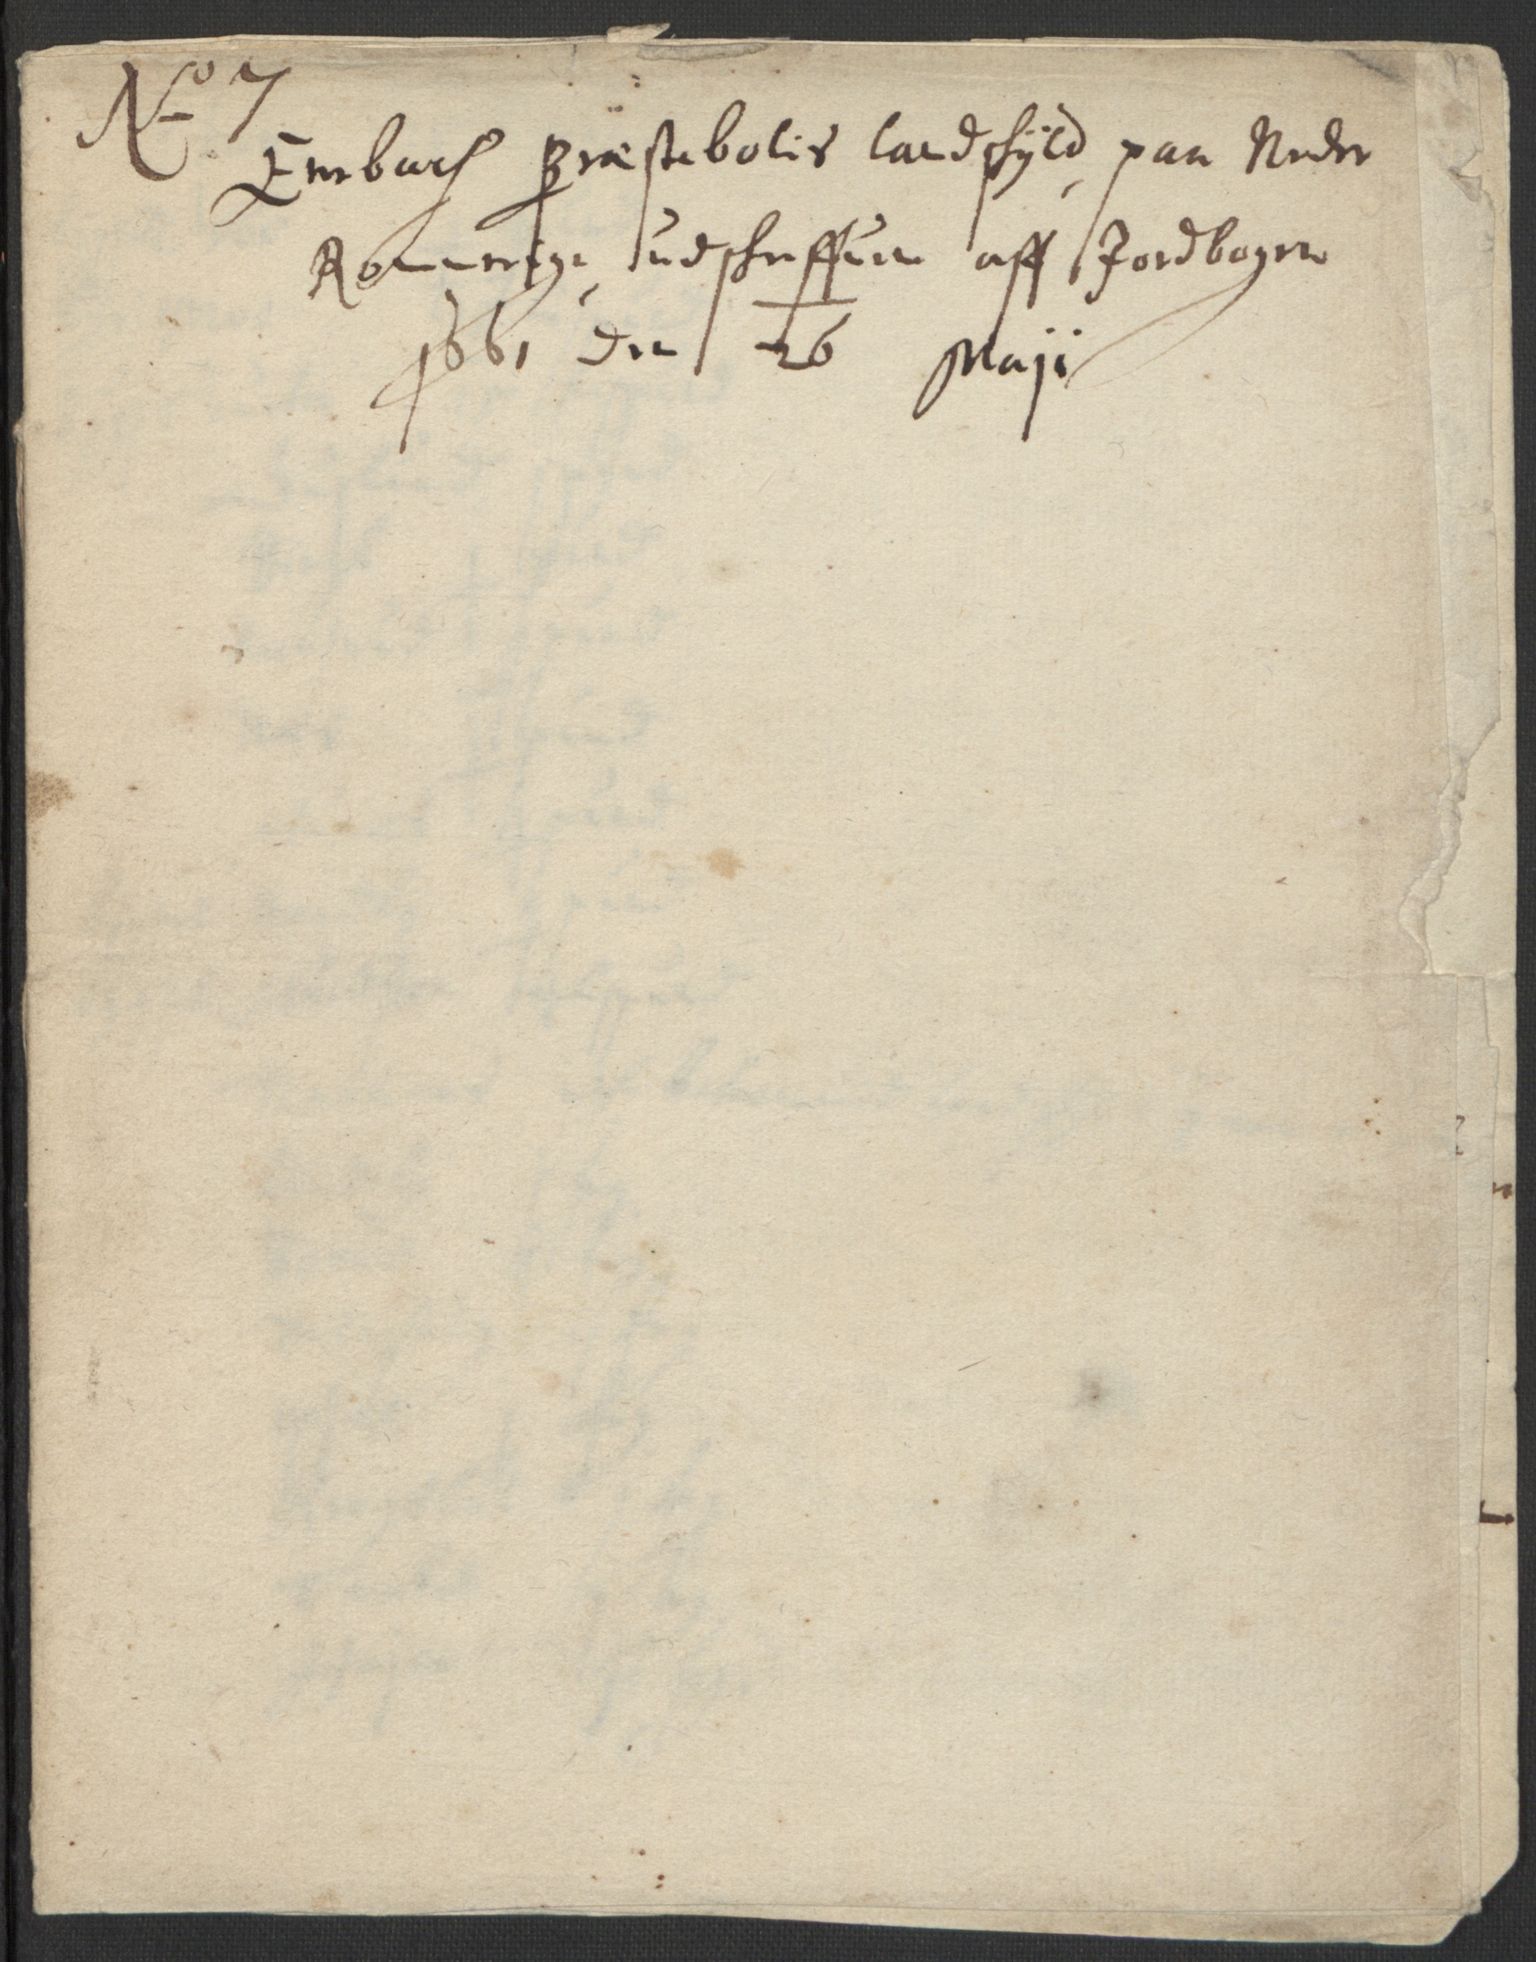 No 7
Enebach Præstebolis landschyld paa Neder
Rommerige udschriffuen aff Jordbogen
1661 den 26 Maji